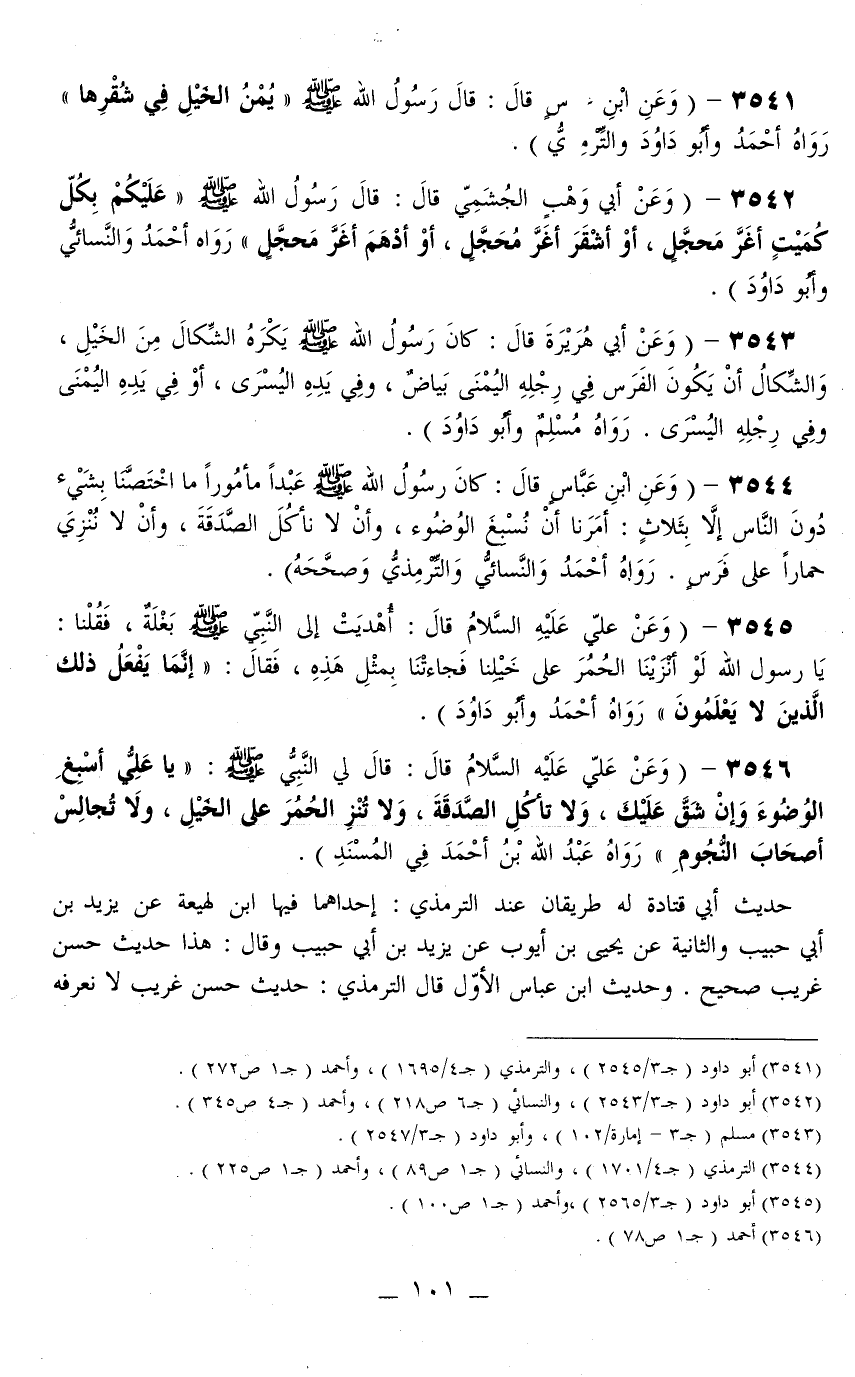 ٣٥٤١ – ( وَعَنِ ابْنِ سٍ قالَ : قالَ رَسُولُ الله ﷺ « يُمْنُ الخَيْلِ فِي شُقْرِها »
رَوَاهُ أحْمَدُ وأبُو دَاوُدَ والتِّرْمِ يُّ ) .
٣٥٤٢ – ( وَعَنْ أبي وَهْبٍ الجُشَمِيّ قالَ : قالَ رَسُولُ الله ﷺ « عَلَيْكُمْ بِكُلّ
كُمَيْتٍ أغَرَّ مَحجَّلٍ ، أوْ أشْقَرَ أغَرَّ مُحَجَّلٍ ، أوْ أدْهَمَ أغَرَّ مَحجَّلٍ » رَوَاه أحْمَدُ وَالنَّسائيُّ
وأبُو دَاوُدَ ) .
٣٥٤٣ – ( وَعَنْ أبي هُرَيْرَةَ قالَ : كانَ رَسُولُ الله ﷺ يَكْرَهُ الشِّكالَ مِنَ الخَيْلِ ،
وَالشِّكالُ أنْ يَكُونَ الفَرَس فِي رِجْلِهِ اليُمْنَى بَياضٌ ، وفِي يَدِهِ اليُسْرَى ، أوْ فِي يَدِهِ اليُمْنَى
وفِي رِجْلِهِ اليُسْرَى . رَوَاهُ مُسْلِمٌ وأبُو دَاوُدَ ) .
٣٥٤٤ – ( وَعَنِ ابْنِ عَبَّاسٍ قالَ : كانَ رسُولُ الله ﷺ عَبْداً مأمُوراً ما اخْتَصَّنَا بِشَيْء
دُونَ النَّاس إلَّا بِثَلاثٍ : أمَرَنا أنْ نُسْبِغَ الوُضُوء ، وأنْ لا نأكُلَ الصَّدَقَةَ ، وأنْ لا نُنْزِيَ
حماراً على فَرَسٍ . رَوَاهُ أحْمَدُ وَالنَّسائيُّ وَالتِّرْمِذيُّ وَصحَّحَهُ) .
٣٥٤٥ – ( وَعَنْ عليّ عَلَيْهِ السَّلامُ قالَ : أُهْدِيَتْ إلى النَّبِيّ ﷺ بَغْلَةٌ ، فَقُلْنا :
يَا رسول الله لَوْ أنْزَيْنَا الحُمُرَ على خَيْلِنا فَجاءتْنَا بِمثْلِ هَذِهِ ، فَقالَ : « إنَّمَا يَفْعَلُ ذلك
الَّذينَ لا يَعْلَمُونَ » رَوَاهُ أحْمَدُ وأبُو دَاوُدَ ) .
٣٥٤٦ – ( وَعَنْ عَليّ عَلَيْه السَّلامُ قالَ : قالَ لي النَّبِيُّ ﷺ : « يا عَليُّ أسْبِغِ
الوُضُوءَ وَإنْ شَقَّ عَلَيْكَ ، وَلا تأكُلِ الصَّدَقَةَ ، وَلا تُنْزِ الحُمُرَ على الخَيْلِ ، ولَا تُجالِسْ
أصحَابَ النُّجُومِ » رَوَاهُ عَبْدُ الله بْنُ أحْمَدَ فِي المُسْنَدِ ) .
حديث أبي قتادة له طريقان عند الترمذي : إحداهما فيها ابن لهيعة عن يزيد بن
أبي حبيب والثانية عن يحيى بن أيوب عن يزيد بن أبي حبيب وقال : هذا حديث حسن
غريب صحيح . وحديث ابن عباس الأوّل قال الترمذي : حديث حسن غريب لا نعرفه
(٣٥٤١) أبو داود ( جـ٣/٢٥٤٥ ) ، والترمذي ( جـ٤/١٦٩٥ ) ، وأحمد ( جـ١ ص٢٧٢ ) .
(٣٥٤٢) أبو داود ( جـ٣/٢٥٤٣ ) ، والنسائي ( جـ٦ ص٢١٨ ) ، وأحمد ( جـ٤ ص٣٤٥ ) .
(٣٥٤٣) مسلم ( جـ٣ – إمارة/١٠٢ ) ، وأبو داود ( جـ٣/٢٥٤٧ ) .
(٣٥٤٤) الترمذي ( جـ٤/١٧٠١ ) ، والنسائي ( جـ١ ص٨٩ ) ، وأحمد ( جـ١ ص٢٢٥ ) .
(٣٥٤٥) أبو داود ( جـ٣/٢٥٦٥ ) ،وأحمد ( جـ١ ص١٠٠ ) .
(٣٥٤٦) أحمد ( جـ١ ص٧٨ ) .
– ١٠١ –